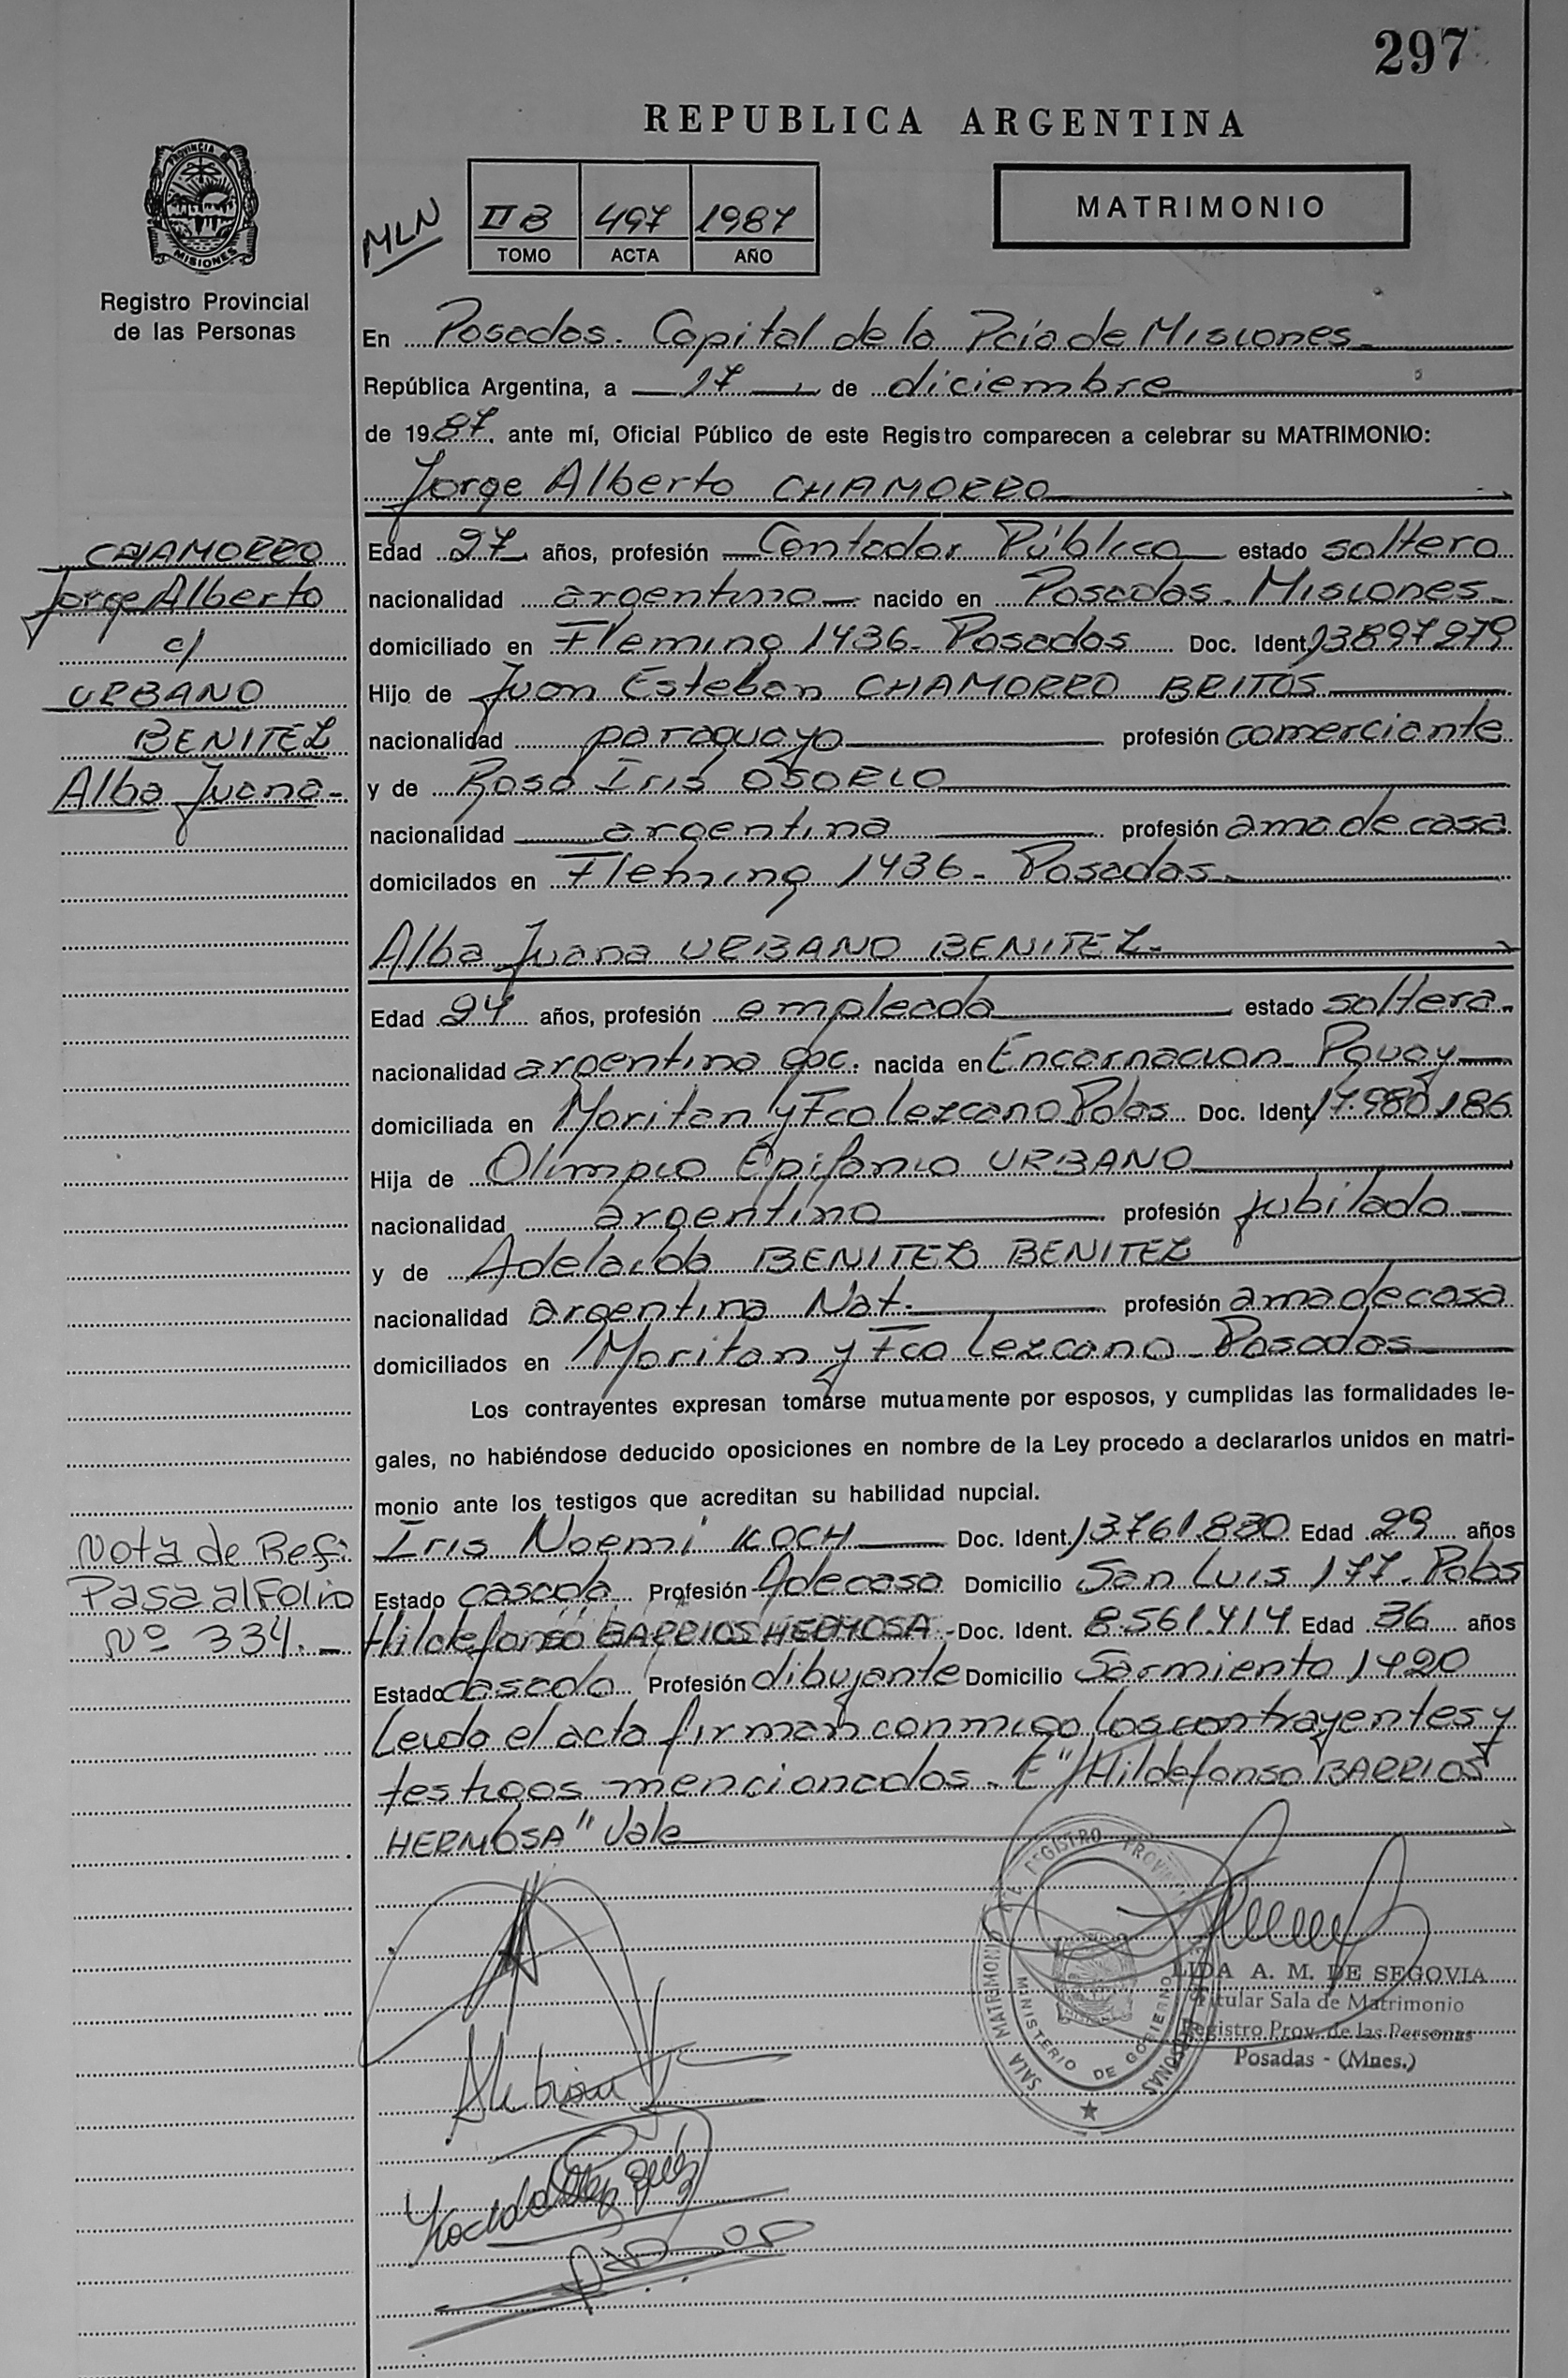 297
REPUBLICA ARGENTINA
PROVINCIA DE
MISIONES
Registro Provincial
de las Personas
MLN
II B 497 1987
TOMO ACTA AÑO
MATRIMONIO
En Posadas. Capital de la Pcia de Misiones
República Argentina, a 17 de diciembre
de 1987, ante mí, Oficial Público de este Registro comparecen a celebrar su MATRIMONIO:
Jorge Alberto CHAMORRO
CHAMORRO
Jorge Alberto
c/
URBANO
BENITEZ
Alba Juana-
Edad 27 años, profesión Contador Público estado soltero
nacionalidad argentino nacido en Posadas. Misiones-
domiciliado en Fleming 1436- Posadas Doc. Ident. 13897279
Hijo de Juan Esteban CHAMORRO BRITOS
nacionalidad paraguayo profesión comerciante
y de Rosa Iris OSORIO
nacionalidad argentina profesión ama de casa
domicilados en Fleming 1436- Posadas-
Alba Juana URBANO BENITEZ-
Edad 24 años, profesión empleada estado soltera-
nacionalidad argentina opc. nacida en Encarnacion- Pguay
domiciliada en Moritan y Fco Lezcano Pdas Doc. Ident. 17.980.186
Hija de Olimpio Epifanio URBANO
nacionalidad argentino profesión jubilado
y de Adelaida BENITEZ BENITEZ
nacionalidad argentina Nat. profesión ama de casa
domiciliados en Moritan y Fco Lezcano- Posadas
Los contrayentes expresan tomarse mutuamente por esposos, y cumplidas las formalidades le-
gales, no habiéndose deducido oposiciones en nombre de la Ley procedo a declararlos unidos en matri-
monio ante los testigos que acreditan su habilidad nupcial.
Iris Noemi KOCH Doc. Ident. 13.761.830 Edad 29 años
Estado casada Profesión Adecasa Domicilio San Luis 177. Pdas
Hildefonso BARRIOS HERMOSA - Doc. Ident. 8.561.414 Edad 36 años
Estado casado Profesión dibujante Domicilio Sarmiento 1420
Leida el acta firman conmigo los contrayentes y
testigos mencionados- E" Hildefonso BARRIOS
HERMOSA" Vale
Nota de Ref:
Pasa al Folio
Nº 334.-
SALA MATRIMONIO DEL REGISTRO PROVINCIAL PERSONAS
MINISTERIO DE GOBIERNO
LIDA A. M. DE SEGOVIA
Titular Sala de Matrimonio
Registro Prov. de las Personas
Posadas - (Mnes.)